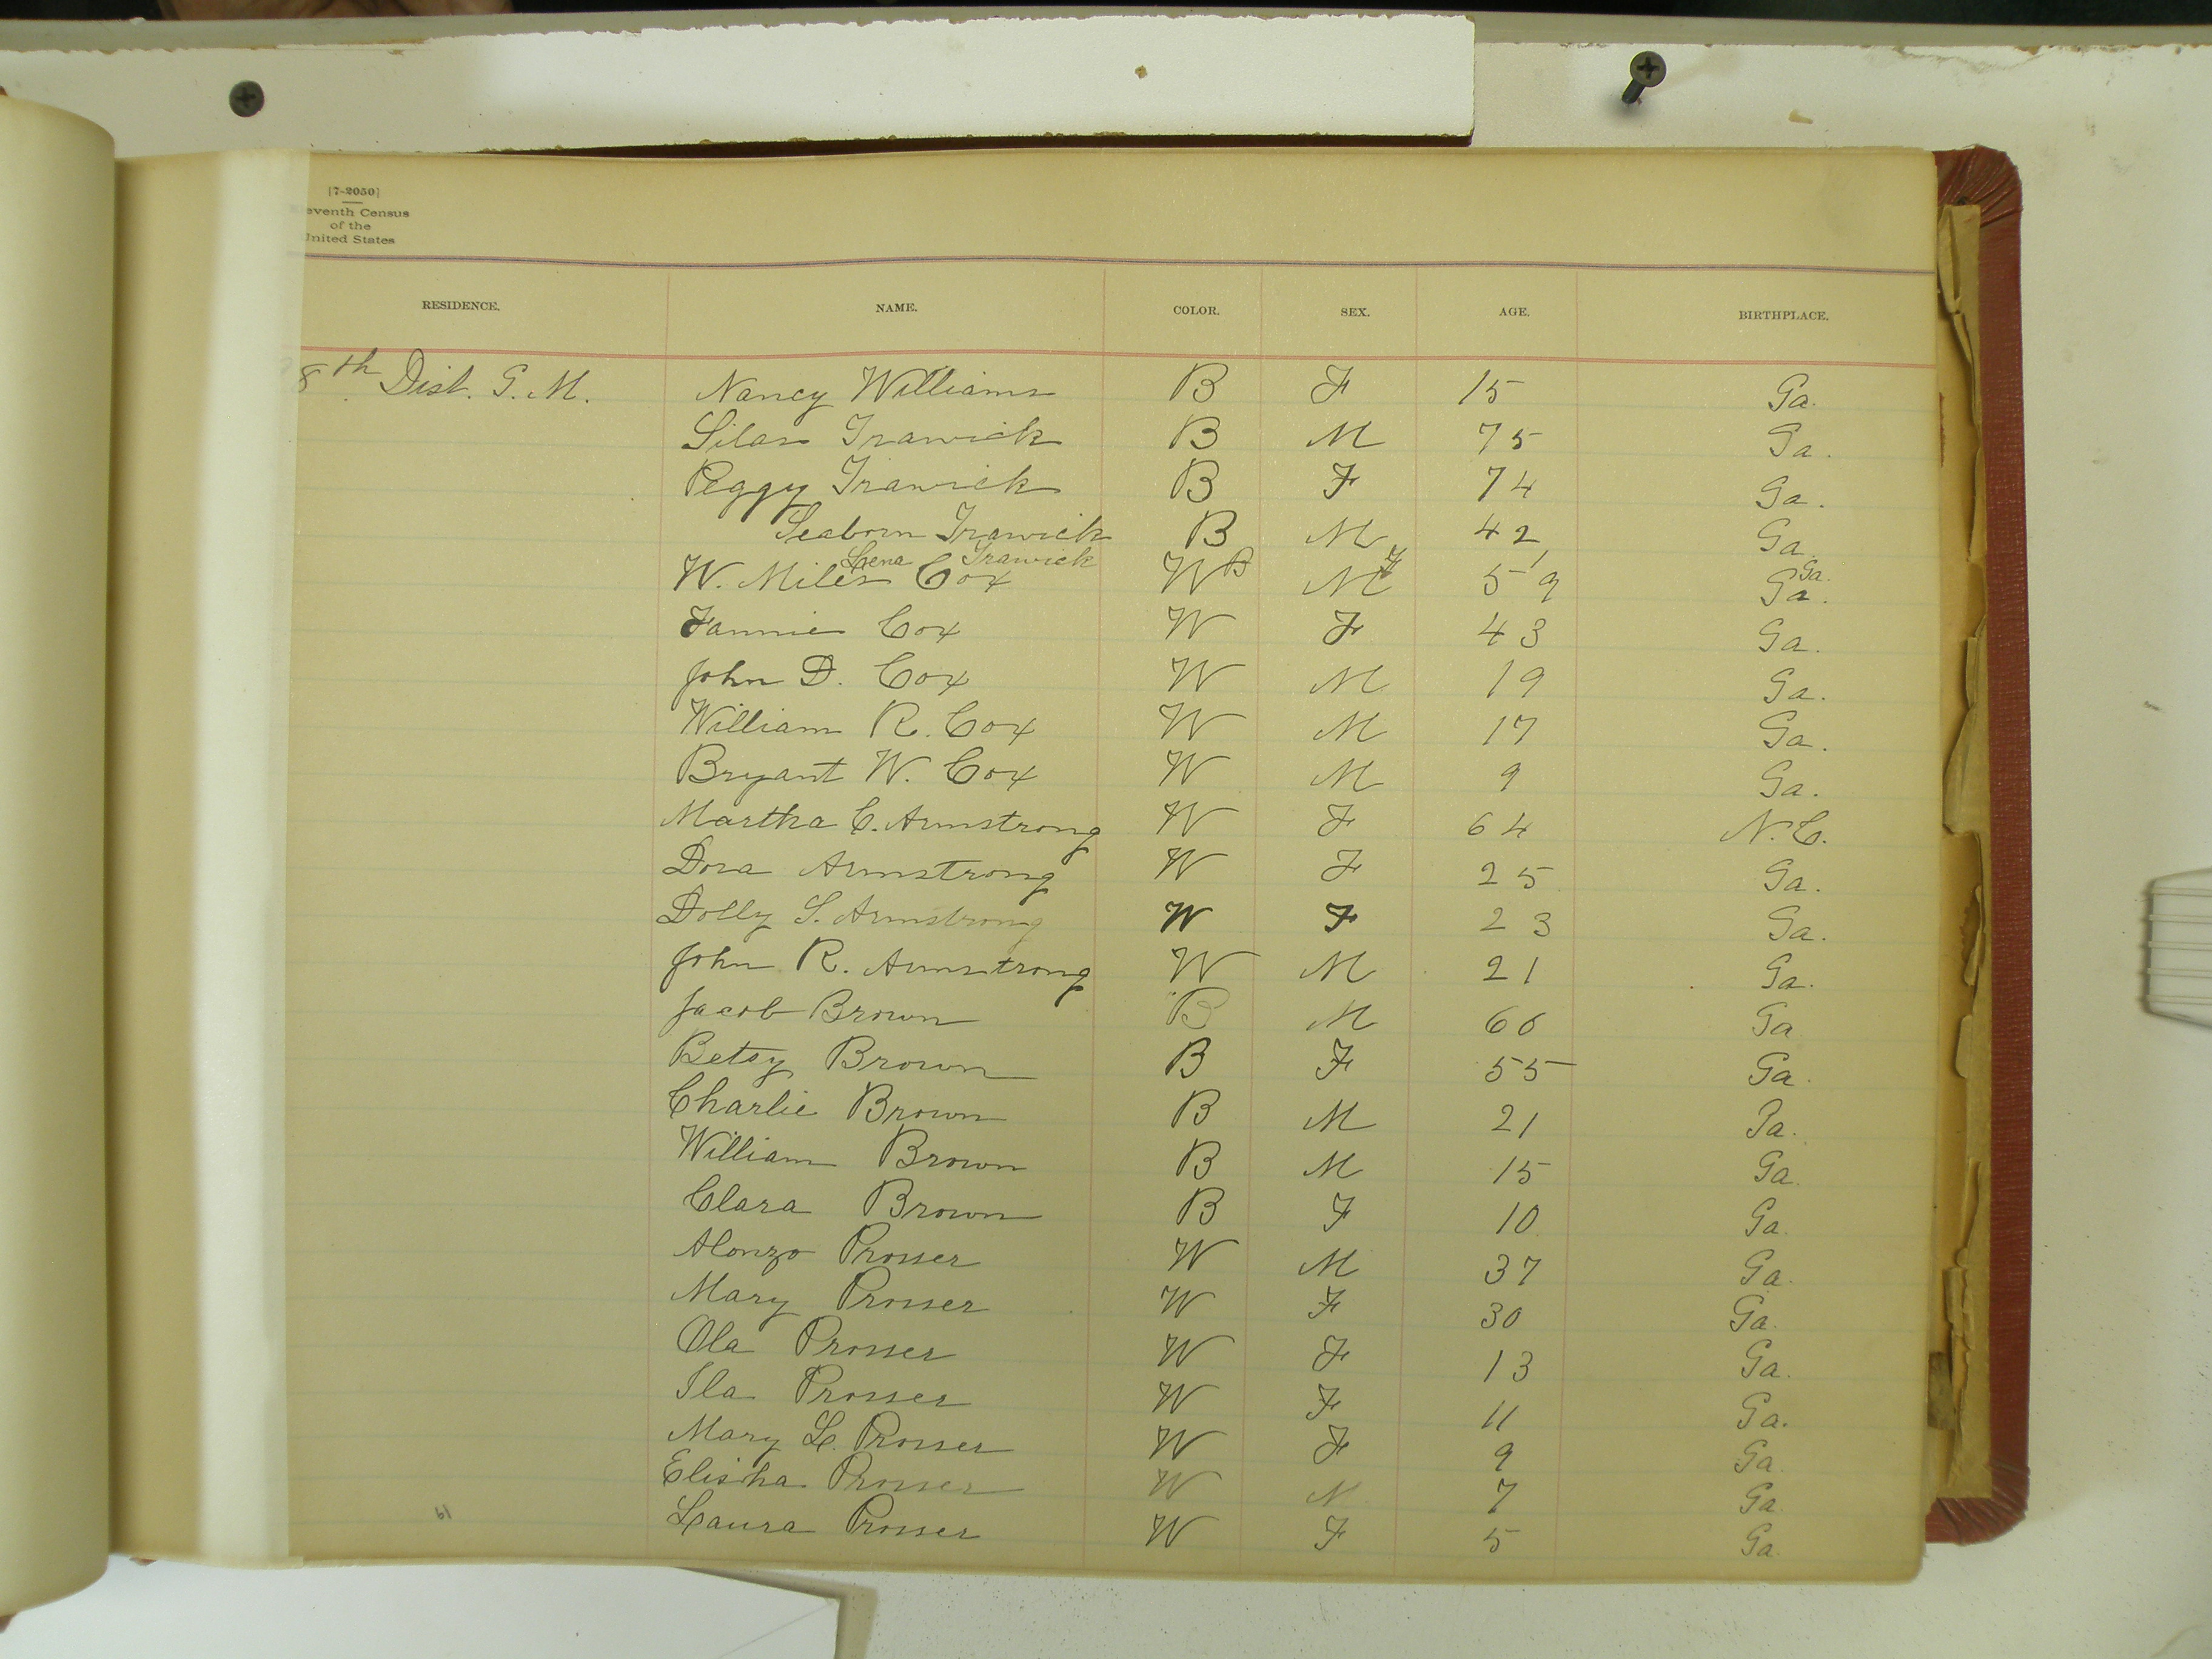 [7-2050]
eventh Census
of the
United States
RESIDENCE. NAME. COLOR. SEX. AGE. BIRTHPLACE.
8th Dist. G. M. Nancy Williams B F 15 Ga.
Silas Trawick B M 75 Ga.
Peggy Trawick B F 74 Ga.
Seaborn Trawick B M 42 Ga.
Lena Trawick B F 1 Ga.
W. Miles Cox W M 59 Ga.
Fannie Cox W F 43 Ga.
John D. Cox W M 19 Ga.
William R. Cox W M 17 Ga.
Bryant W. Cox W M 9 Ga.
Martha C. Armstrong W F 64 N.C.
Dora Armstrong W F 25 Ga.
Dolly S. Armstrong W F 23 Ga.
John R. Armstrong W M 21 Ga.
Jacob Brown B M 60 Ga
Betsy Brown B F 55 Ga.
Charlie Brown B M 21 Ga.
William Brown B M 15 Ga.
Clara Brown B F 10 Ga.
Alonzo Prosser W M 37 Ga.
Mary Prosser W F 30 Ga.
Ola Prosser W F 13 Ga.
Ila Prosser W F 11 Ga.
Mary L. Prosser W F 9 Ga.
Elisha Prosser W M 7 Ga.
Laura Prosser W F 5 Ga.